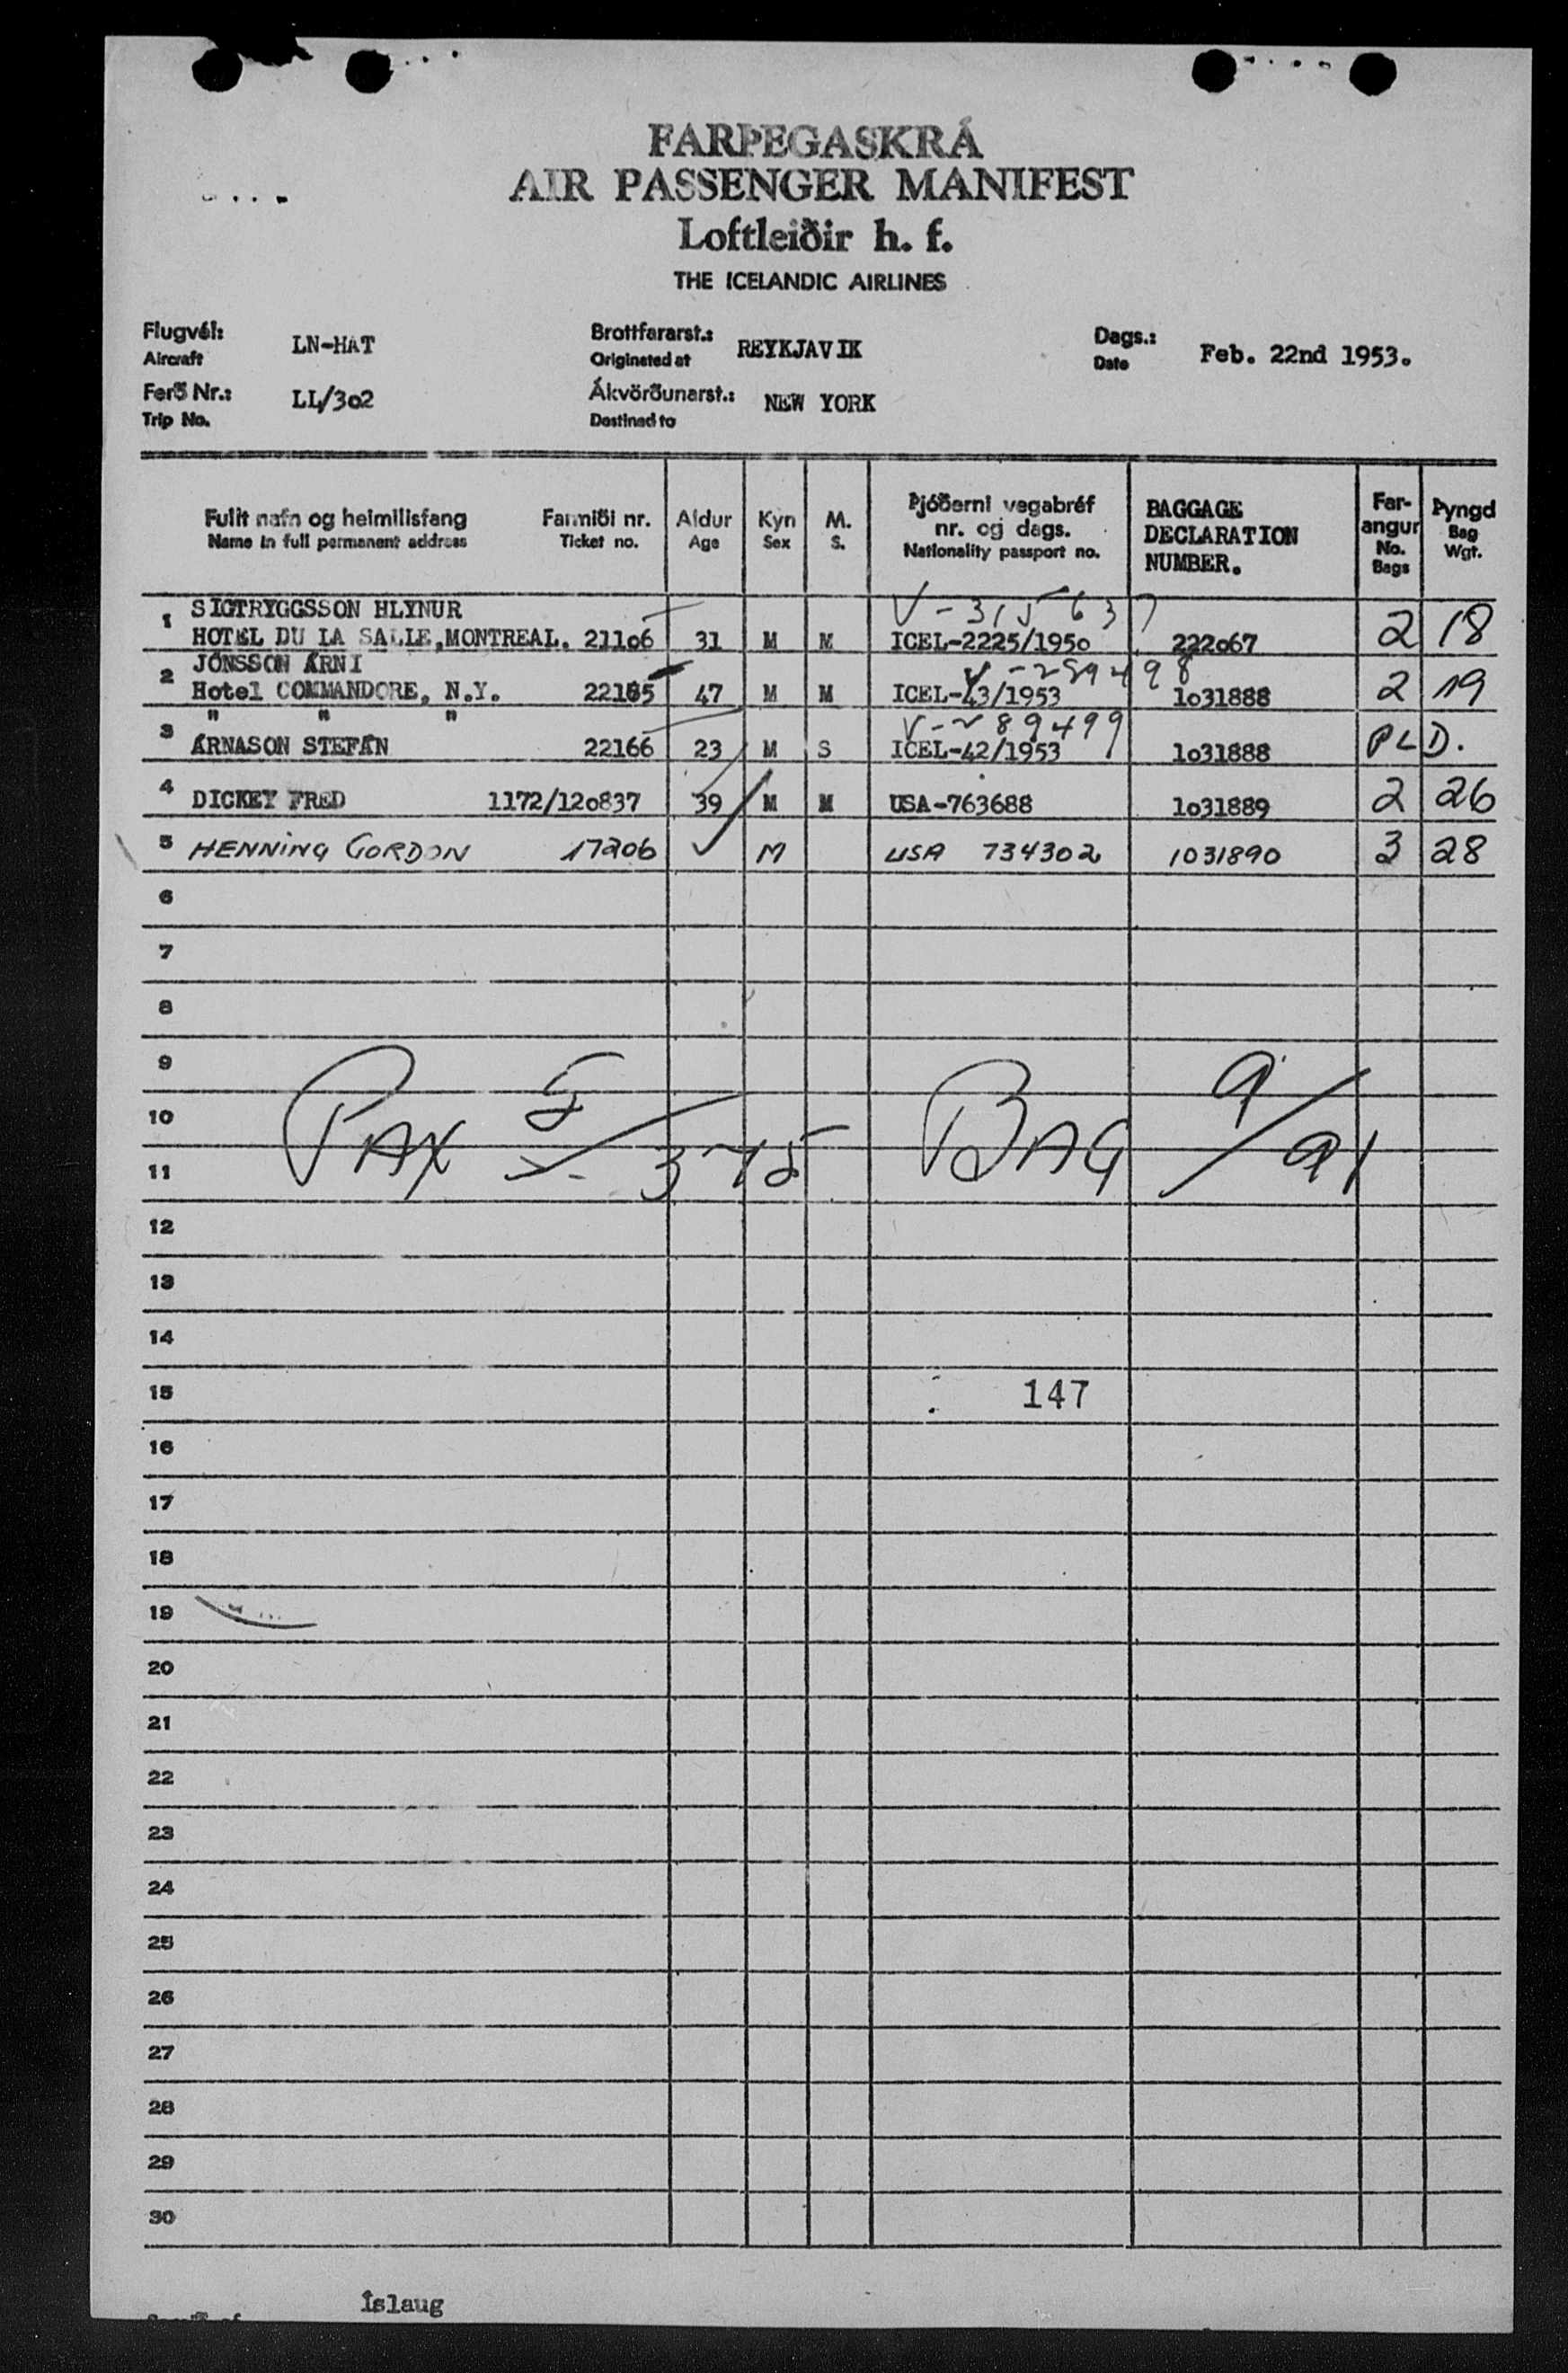 FARÞEGASKRÁ
AIR PASSENGER MANIFEST
Loftleiðir h. f.
THE ICELANDIC AIRLINES
Flugvél: LN-HAT Brottfararst.: REYKJAVIK Dags.: Feb. 22nd 1953.
Aircraft Originated at Date
Ferð Nr.: LL/302 Ákvörðunarst.: NEW YORK
Trip No. Destined to
Fullt nafn og heimilisfang Farmiði nr. Aldur Kyn M. Þjóðerni vegabréf nr. og dags. BAGGAGE DECLARATION NUMBER. Far-angur Þyngd
Name in full permanent address Ticket no. Age Sex S. Nationality passport no. No. Bags Bag Wgt.
1 SIGTRYGGSSON HLYNUR V-315637
HOTEL DU LA SALLE,MONTREAL. 21106 31 M M ICEL-2225/1950 222067 2 18
2 JÓNSSON ÁRNI V-289498
Hotel COMMANDORE, N.Y. 22165 47 M M ICEL-43/1953 1031888 2 19
" " " V-289499
3 ÁRNASON STEFÁN 22166 23 M S ICEL-42/1953 1031888 PLD.
4 DICKEY FRED 1172/120837 39 M M USA-763688 1031889 2 26
5 HENNING GORDON 17206 M USA 734302 1031890 3 28
6
7
8
9
10 PAX 5/375 BAG 9/91
11
12
13
14
15 147
16
17
18
19
20
21
22
23
24
25
26
27
28
29
30
Íslaug